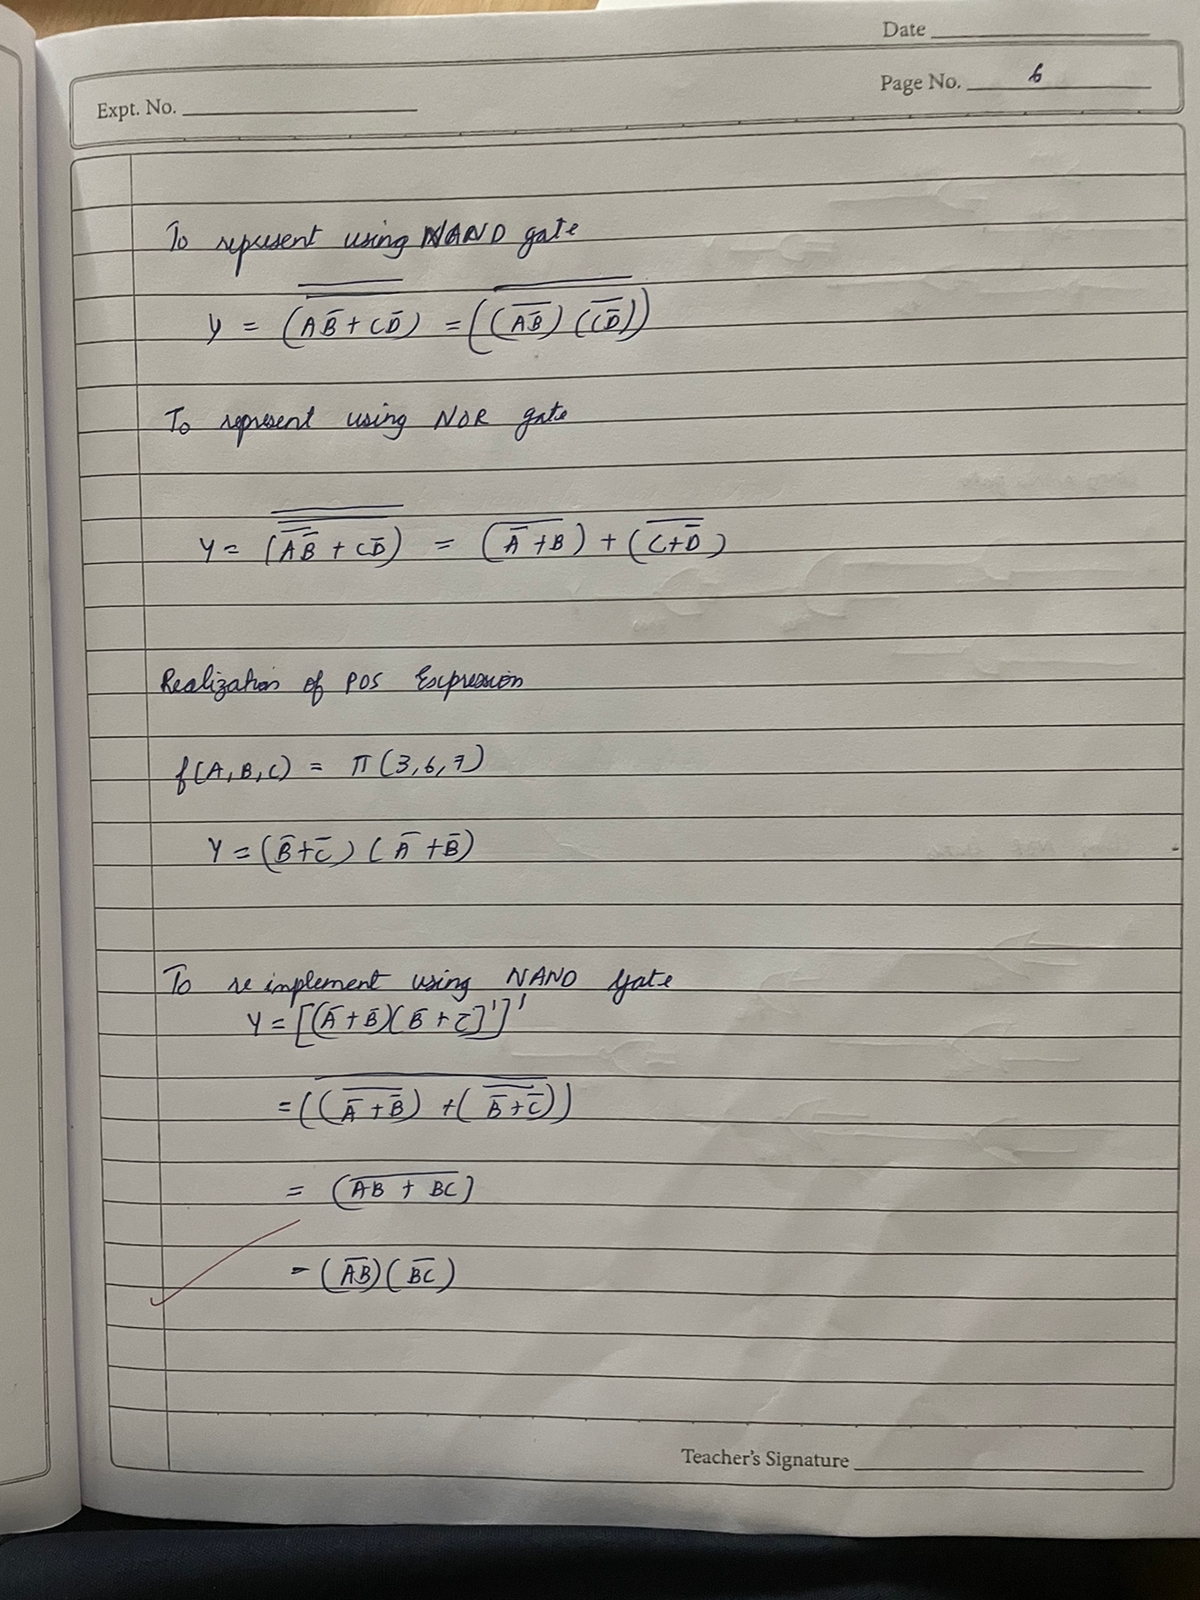 Date
Page No. 6
Expt. No.
To represent using NAND gate
Y = (A B̅ + C D̅) = ((A B̅) (C D̅))
To represent using NOR gate
Y = (A B̅ + C D̅) = (A̅ + B) + (C + D̅)
Realization of POS Expression
f(A, B, C) = π(3, 6, 7)
Y = (B̅ + C̅) (A̅ + B̅)
To re implement using NAND gate
Y = [(A̅ + B̅)(B̅ + C̅]']'
= ((A̅ + B̅) + (B̅ + C̅))
= (AB + BC)
= (AB) (BC)
Teacher's Signature